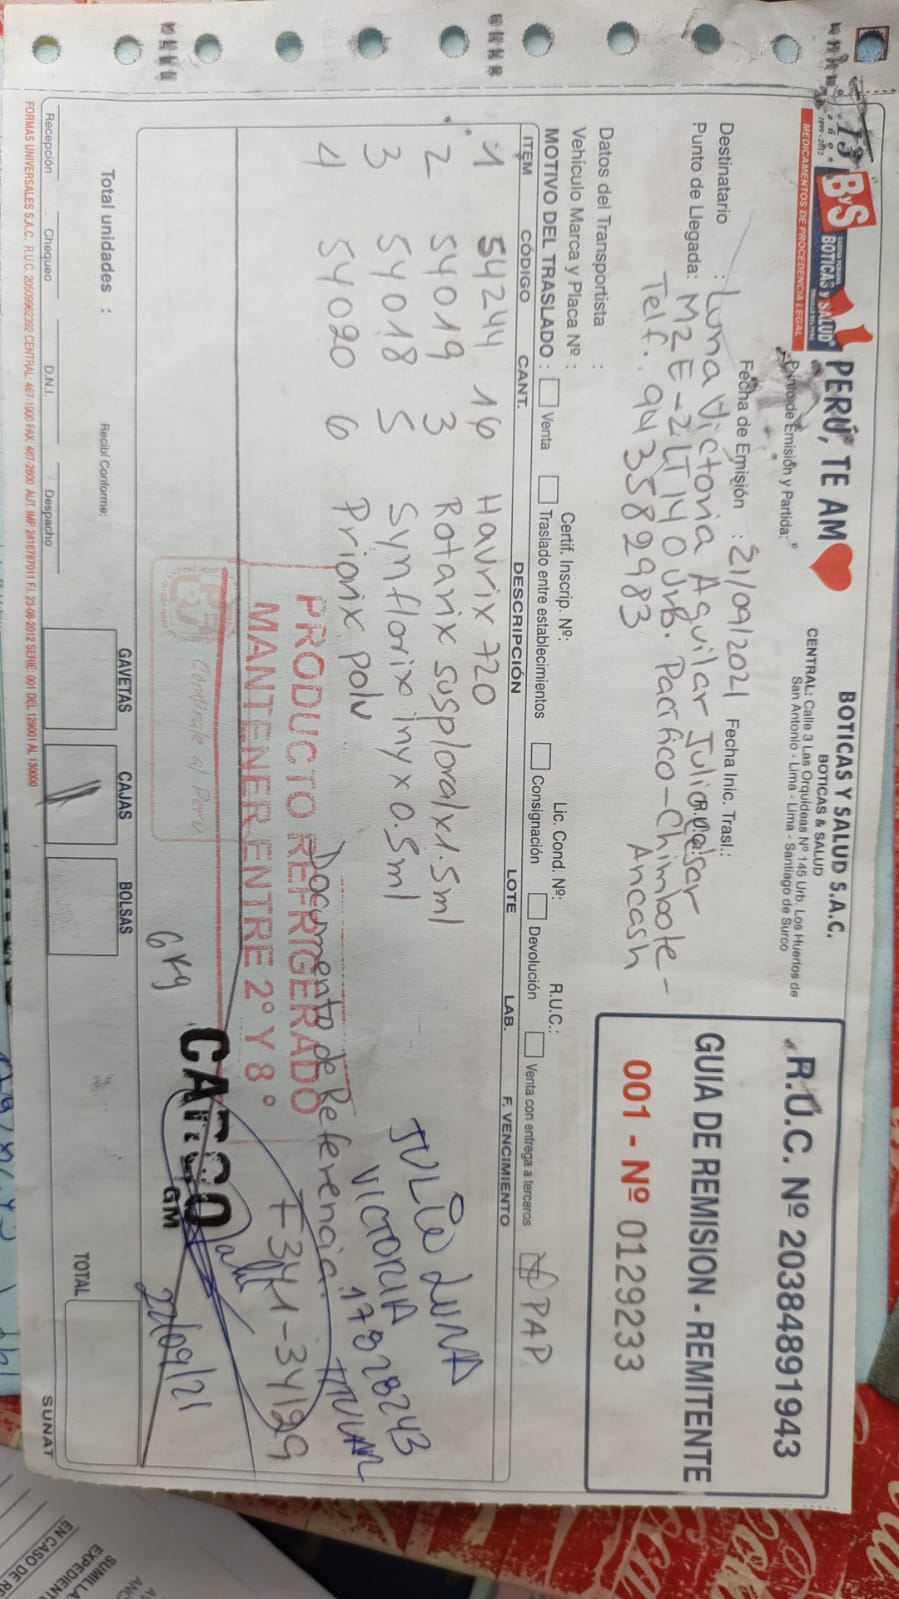 BYS
BOTICAS y SALUD
MEDICAMENTOS DE PROCEDENCIA LEGAL
PERÚ, TE AM
BOTICAS Y SALUD S.A.C.
BOTICAS & SALUD
CENTRAL: Calle 3 Las Orquideas Nº 145 Urb. Los Huertos de
San Antonio - Lima - Lima - Santiago de Surco
R.U.C. Nº 20384891943
GUIA DE REMISION - REMITENTE
001 - Nº 0129233
Punto de Emisión y Partida:
Fecha de Emisión : 21/09/2021 Fecha Inic. Trasl.:
Destinatario : Luna Victoria Aguilar Julio Cesar
Punto de Llegada: MZ E-2 LT 14 Urb. Pacifico - Chimbote -
Ancash
Telf. 943582983
Datos del Transportista :
Vehículo Marca y Placa Nº : Certif. Inscrip. Nº: Lic. Cond. Nº: R.U.C.:
MOTIVO DEL TRASLADO : Venta Traslado entre establecimientos Consignación Devolución Venta con entrega a terceros PAP
ITEM CÓDIGO CANT. DESCRIPCIÓN LOTE LAB. F. VENCIMIENTO
1 54244 16 Havrix 720
2 54019 3 Rotarix susp/oral x1.5ml
3 54018 5 Synflorix iny x 0.5ml
4 54020 6 Priorix polv
JULIO LUNA
VICTORIA
17828243
TITULAR
Documento de Referencia:
F341-34129
PRODUCTO REFRIGERADO
MANTENER ENTRE 2° Y 8°
Cómprale al Perú
CARGO
GM
6 Kg
22/09/21
Total unidades :
Recibí Conforme:
GAVETAS CAJAS BOLSAS
TOTAL
Recepción Chequeo D.N.I. Despacho
SUNAT
FORMAS UNIVERSALES S.A.C. R.U.C. 20509962292 CENTRAL: 467-1900 FAX: 467-2600 AUT. IMP 2416787011 F.I. 23-08-2012 SERIE: 001 DEL 129001 AL 130000
EN CASO DE RE
SUMILLA
EXPEDIENT